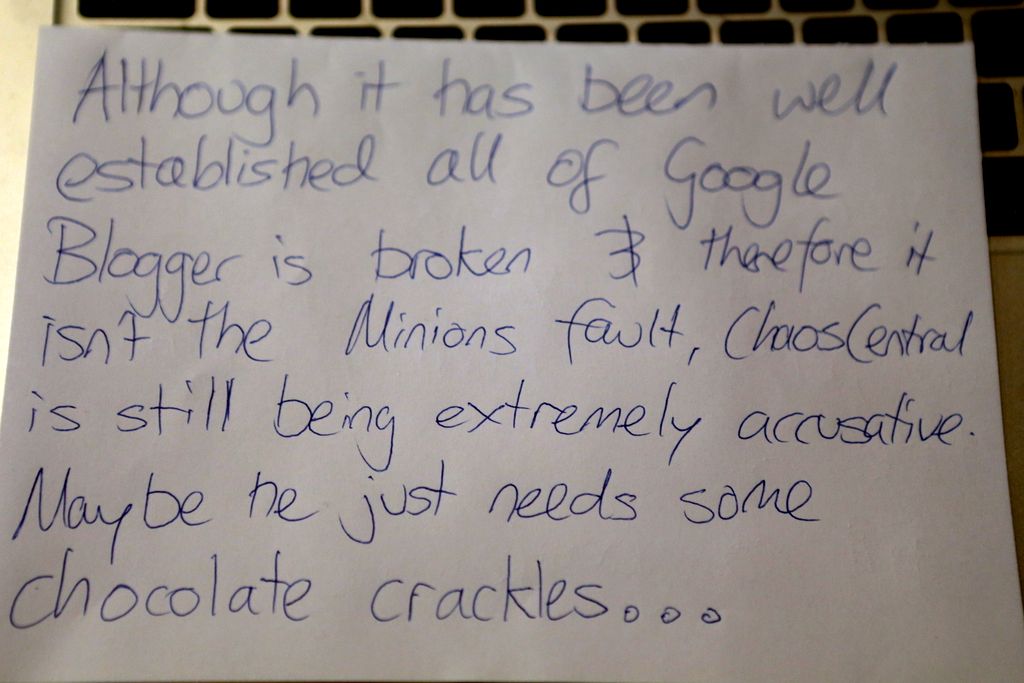 Although it has been well
established all of Google
Blogger is broken & therefore it
isn't the Minions fault, ChaosCentral
is still being extremely accusative.
Maybe he just needs some
chocolate crackles...